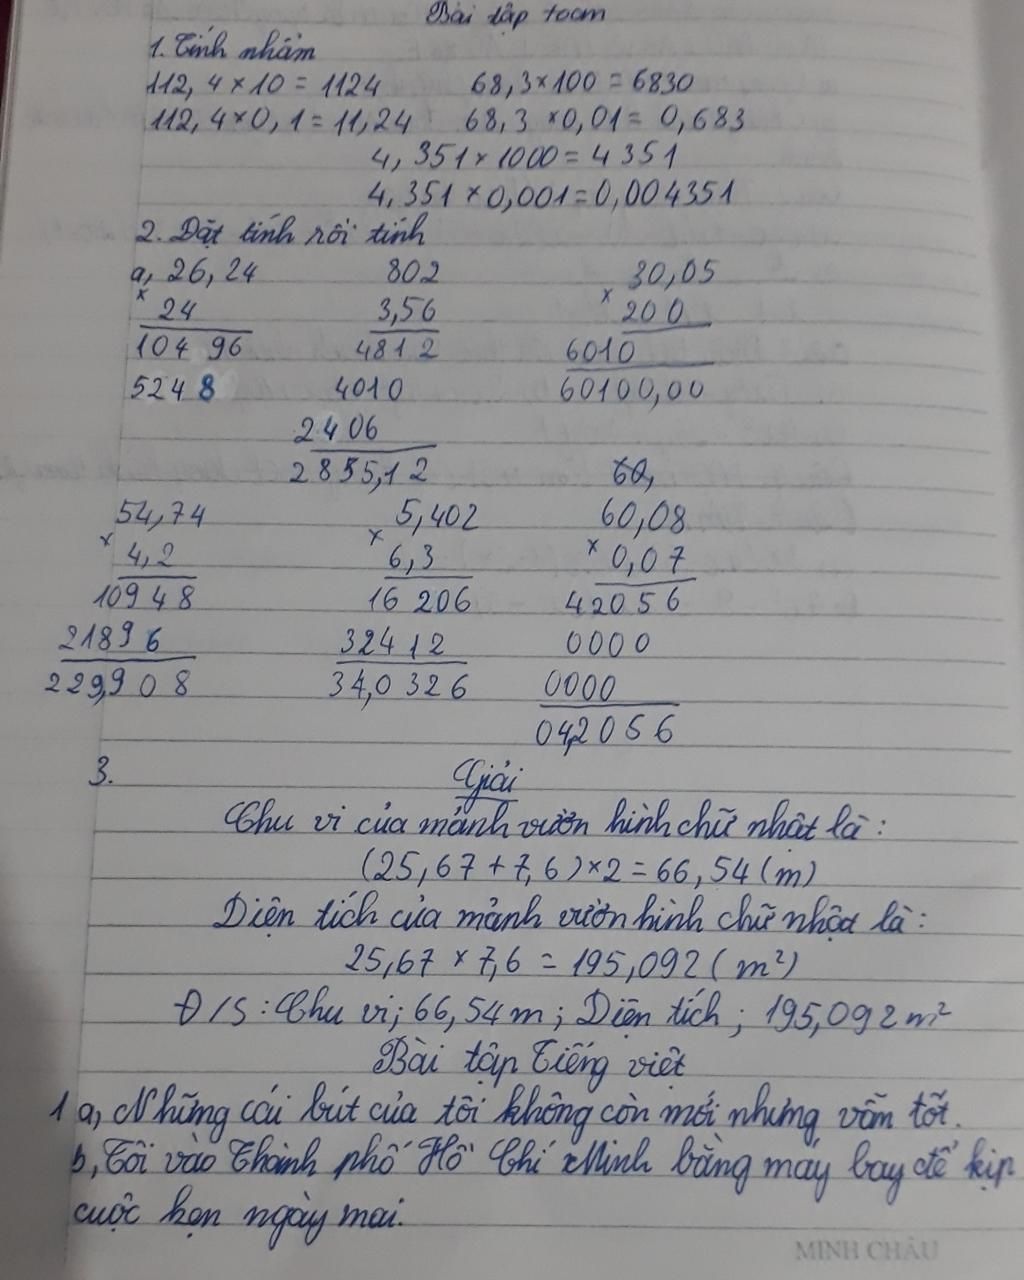 Bài tập toán
1. Tính nhẩm
112,4 × 10 = 1124 68,3 × 100 = 6830
112,4 × 0,1 = 11,24 68,3 × 0,01 = 0,683
4,351 × 1000 = 4351
4,351 × 0,001 = 0,004351
2. Đặt tính rồi tính
a, 26,24 802 30,05
× 24 3,56 × 200
104 96 4812 6010
524 8 4010 60100,00
2406
2855,12 60,
54,74 5,402 60,08
× 4,2 × 6,3 × 0,07
10948 16206 42056
21896 32412 0000
229,908 34,0326 0000
04,2056
3. Giải
Chu vi của mảnh vườn hình chữ nhật là:
(25,67 + 7,6) × 2 = 66,54 (m)
Diện tích của mảnh vườn hình chữ nhật là:
25,67 × 7,6 = 195,092 (m²)
Đ/S: Chu vi; 66,54 m; Diện tích; 195,092 m²
Bài tập Tiếng việt
1 a, Những cái bút của tôi không còn mới nhưng vẫn tốt.
b, Tôi vào Thành phố Hồ Chí Minh bằng máy bay để kịp
cuộc hẹn ngày mai.
MINH CHÂU